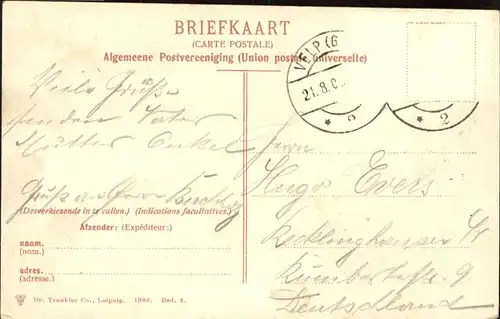 BRIEFKAART
(CARTE POSTALE)
Algemeene Postvereeniging (Union postale universelle)
VELP (G
21.8.0
* 2
* 2
Viele Grüße
senden Vater
Mutter Onkel
Herrn
Hugo Evers
Recklinghausen
9
Deutschland
(Desverkiezende in te vullen.) (Indications facultatives.)
Afzender: (Expéditeur:)
naam.
(nom.)
adres.
(adresse.)
Dr. Trenkler Co., Leipzig. 1906. Hed. 2.